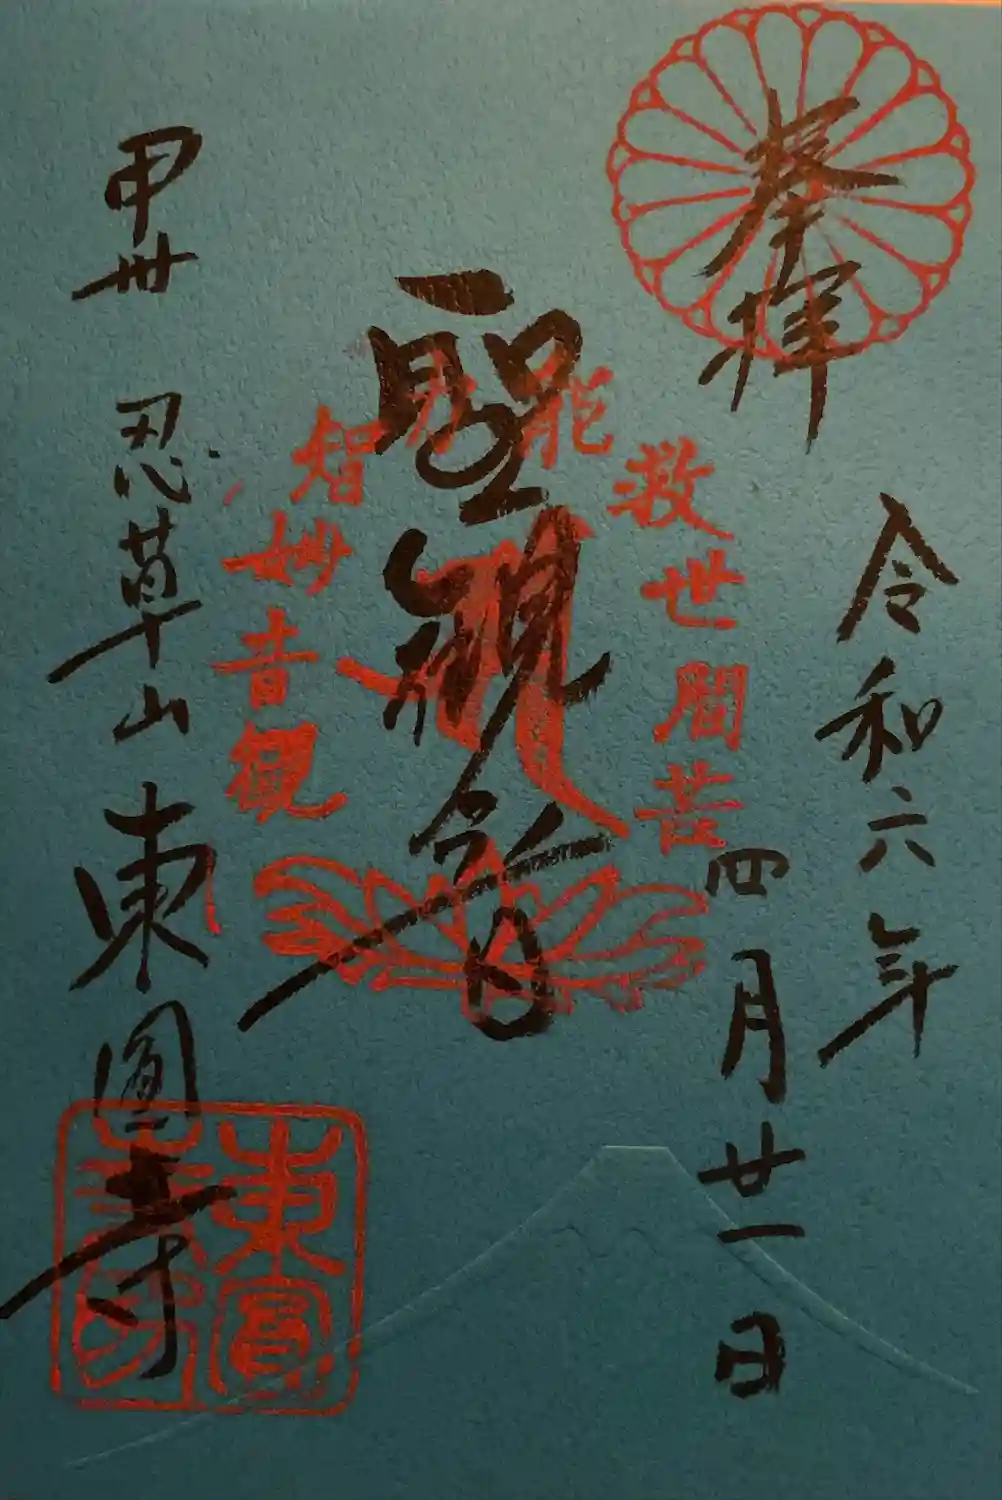 奉拝
令和六年
四月廿一日
聖観音
観音妙智力
能救世間苦
甲州 忍草山 東圓寺